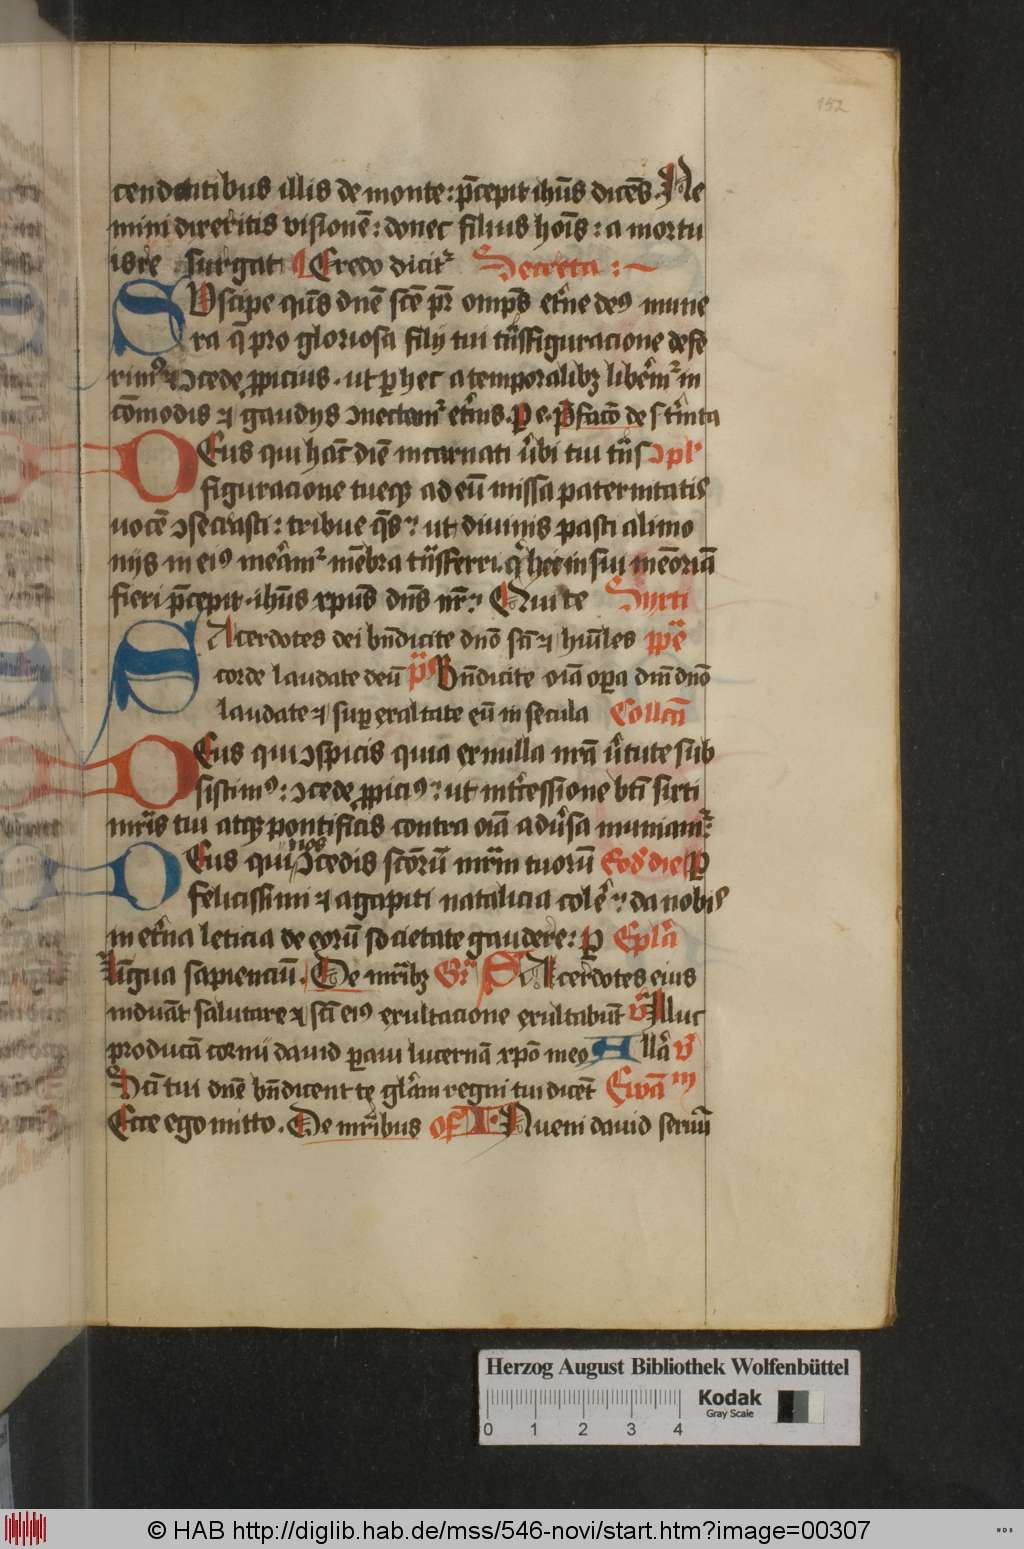 152
cendentibus illis de monte : p̄cepit ihūs dicēs. Ne
mini dixeritis visionē : donec filius hoīs : a mortu
is re surgat Credo dicit᷑ Secreta :~
SUscipe qūs dnē scē pr̄ omps̄ etn̄e deꝰ mune
ra q̄ pro gloriosa filij tui tn̄sfiguracione defe
rimꝰ ↄcede ꝓpicius . ut ꝑ hec a temporalibꝫ libēm᷑ in
cōmodis ⁊ gaudijs ↄnectam᷑ et̄nis. ꝑ e. p̄facō de s t̄nita
DEus qui hac̄ diē incarnati v̄bi tui tn̄s ↄpl'
figuracione tueqꝫ ad eū missa paternitatis
uocē ↄsecrasti : tribue qs̄ : ut divinis pasti alimo
nijs in eiꝰ meām᷑ mēbra tn̄sferri . q̄ hec in sui mēoriā
fieri p̄cepit . ihūs xpūs dn̄s nr̄ : Qui te Syxti
SAcerdotes dei bn̄dicite dnō sc̄i ⁊ hūiles ps̄
corde laudate deū ps̄ Bn̄dicite oīa oꝑa dnī dnō
laudate ⁊ suꝑ exaltate eū in secula Collcā
DEus qui ↄspicis quia ex nulla nr̄a v̄tute sub
sistimꝰ : ↄcede ꝓpiciꝰ : ut int̄cessione bt̄i sixti
mr̄is tui atqꝫ pontificis contra oīa adūsa muniam᷑
DEus qui nos ↄcedis scōrū mr̄m tuorū Eod' die ꝑ
felicissimi ⁊ agapiti natalicia colē : da nobis
in et̄na leticia de eorū societate gaudere : ꝑ Eplā
Lingua sapienciū . De mr̄ibꝫ Gr̄ SAcerdotes eius
induāt salutare ⁊ sc̄i eiꝰ exultacione exultabūt v̄ Illuc
producā cornu david paravi lucernā xpō meo Allā v̄
Sc̄i tui dnē bn̄dicent te gl̄am regni tui dicēt Ewāᵐ
Ecce ego mitto . De mr̄ibus of INveni david servū
Herzog August Bibliothek Wolfenbüttel
0 1 2 3 4
Kodak
Gray Scale
© HAB http://diglib.hab.de/mss/546-novi/start.htm?image=00307